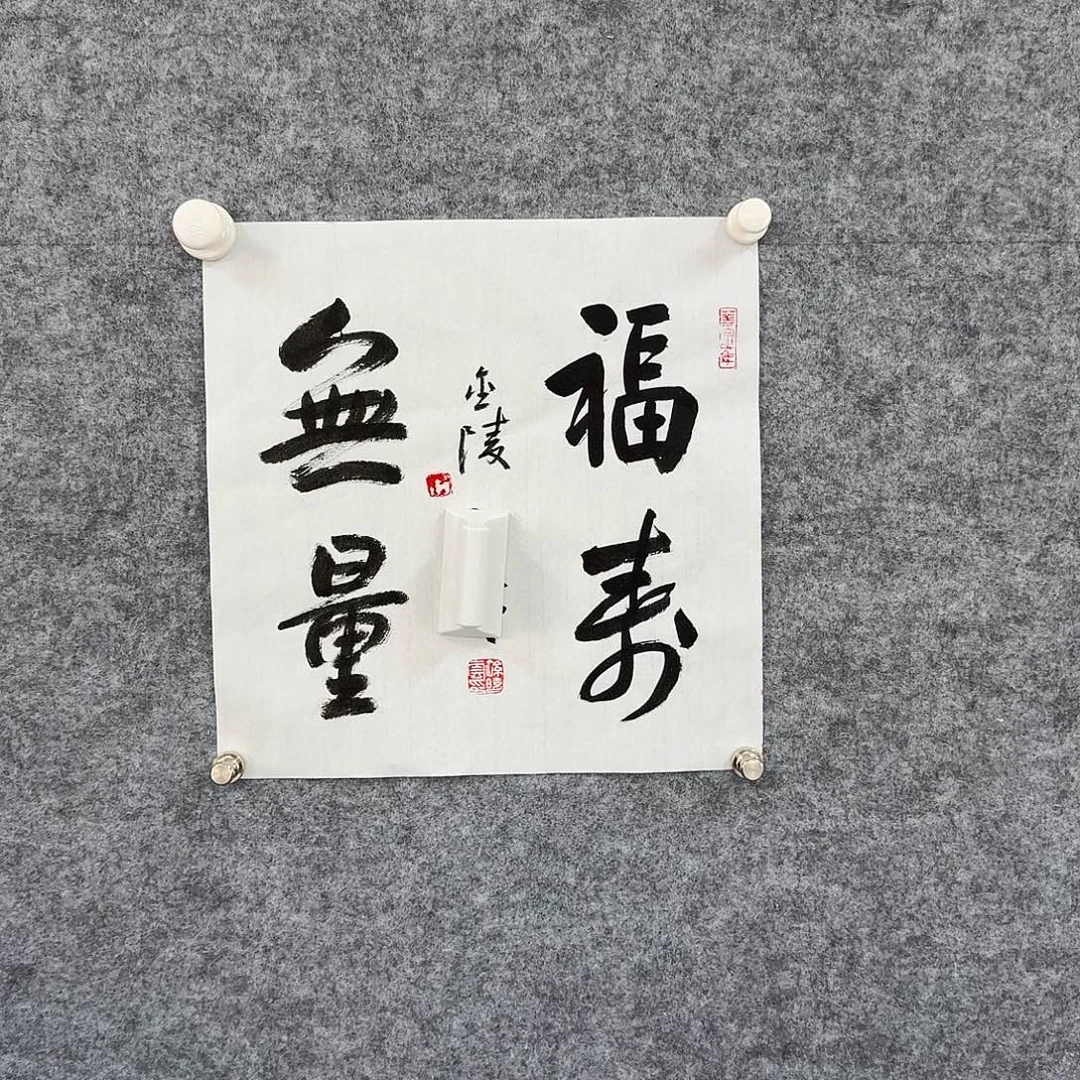 福寿
無量
金陵